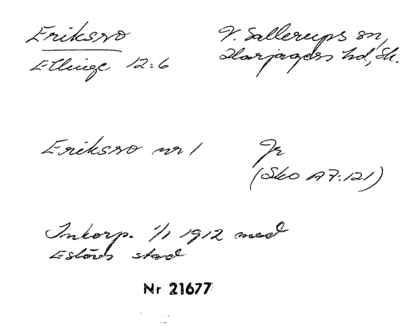 Eriksro V. Sallerups sn,
Ellinge 12:6 Harjagers hd, Sk.
Eriksro nr 1 Jr
(Sko A7:121)
Inkorp. 1/1 1912 med
Eslövs stad
Nr 21677